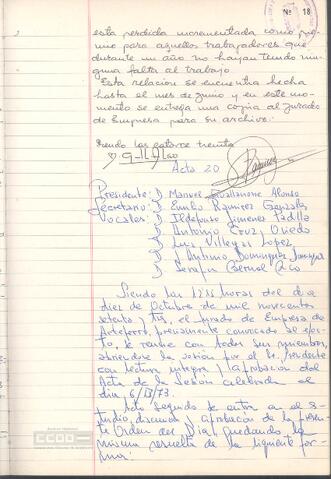 Nº 18
esta perdida incrementada como pre-
mio para aquellos trabajadores que
durante un año no hayan tenido nin-
guna falta al trabajo.
Esta relacion se encuentra hecha
hasta el mes de junio y en este mo-
mento se entrega una copia al Jurado
de Empresa para su archivo.
Siendo las catorce treinta
Acta 20
Presidente: D. Manuel Alonso
Secretario: D. Emilio Ramirez Gonzalez
Vocales: D. Ildefonso Jimenez Padilla
D. Antonio Cruz Oviedo
D. Luis Villegas Lopez
D. Antonio Dominguez
D. Serafin Bernal Rico
Siendo las horas del dia
diez de Octubre de mil novecent
setenta y tres, el Jurado de Empresa de
Arteferro, previamente convocado al efec-
to, se reune con todos sus miembros,
abriendose la sesion por el Sr. Presidente
con lectura integra y aprobacion del
Acta de la Sesion celebrada el
dia 6/13/73.
Acto seguido se entra en el es-
tudio, discusion y aprobacion de la presen-
te Orden del Dia, quedando la
misma resuelta de la siguiente for-
ma:
CCOO